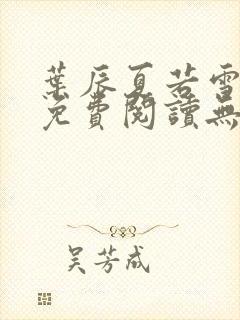 葉辰夏若雪
免費閱讀無
吴芳成